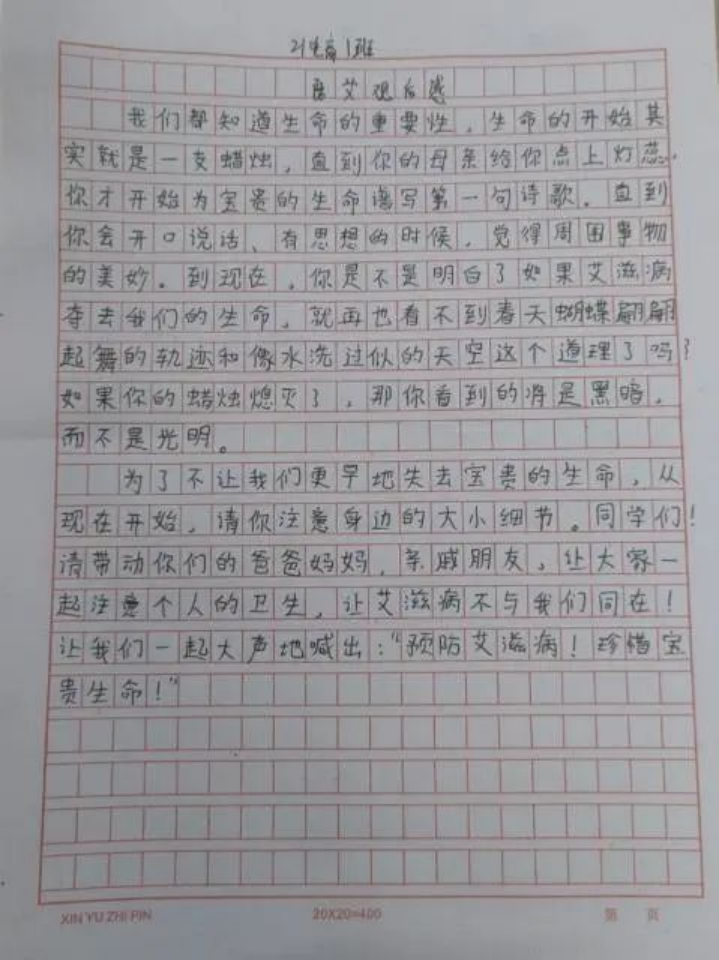 21电商1班
防艾观后感
我们都知道生命的重要性，生命的开始其
实就是一支蜡烛，直到你的母亲给你点上灯蕊，
你才开始为宝贵的生命谱写第一句诗歌。直到
你会开口说话、有思想的时候，觉得周围事物
的美妙。到现在，你是不是明白了如果艾滋病
夺去我们的生命，就再也看不到春天蝴蝶翩翩
起舞的轨迹和像水洗过似的天空这个道理了吗？
如果你的蜡烛熄灭了，那你看到的将是黑暗，
而不是光明。
为了不让我们更早地失去宝贵的生命，从
现在开始，请你注意身边的大小细节。同学们！
请带动你们的爸爸妈妈，亲戚朋友，让大家一
起注意个人的卫生，让艾滋病不与我们同在！
让我们一起大声地喊出：“预防艾滋病！珍惜宝
贵生命！”
XIN YU ZHI PIN 20X20=400 第 页